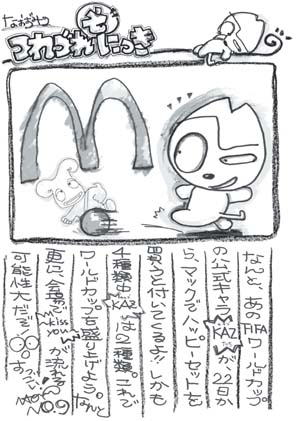 つれづれにっき
M
なんと、あのFIFAワールドカップ
の公式キャラ"KAZ"が、22日か
ら、マックでハッピーセットを
買うと付いてくるよ!しかも
4種類中"KAZ"は2種類。これで
ワールドカップも盛り上げよう。なんと
更に、会場で"kiss you"が流れる
可能性大だぞ!
NO.9